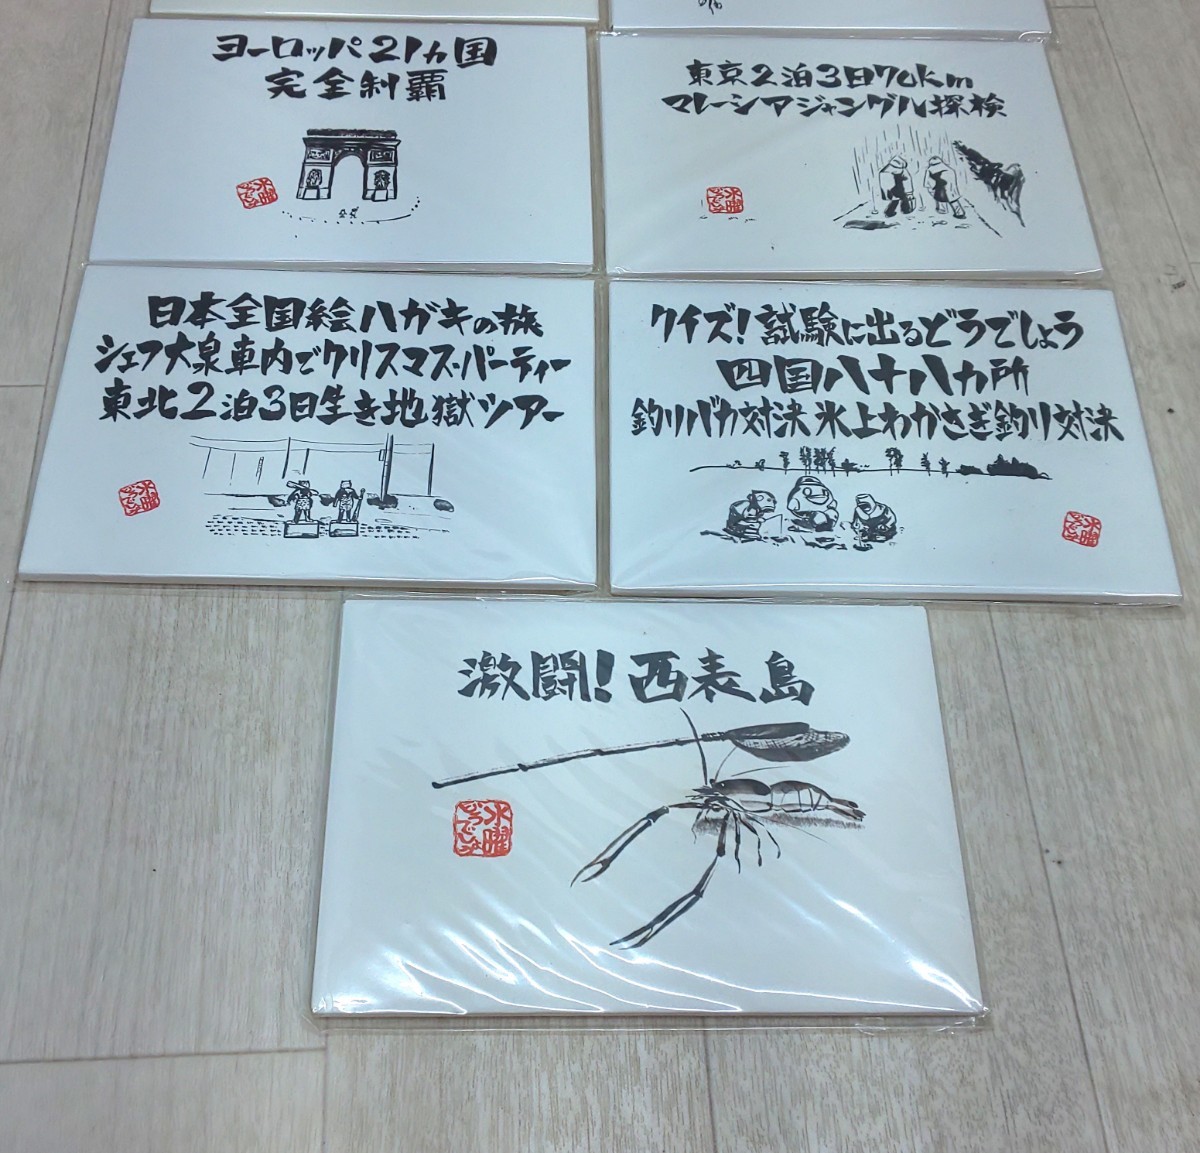 ヨーロッパ21ヵ国
完全制覇
水曜
どうでしょう
東京2泊3日70km
マレーシアジャングル探検
水曜
どうでしょう
日本全国絵ハガキの旅
シェフ大泉車内でクリスマス・パーティー
東北2泊3日生き地獄ツアー
水曜
どうでしょう
クイズ!試験に出るどうでしょう
四国八十八カ所
釣りバカ対決 氷上わかさぎ釣り対決
水曜
どうでしょう
激闘!西表島
水曜
どうでしょう